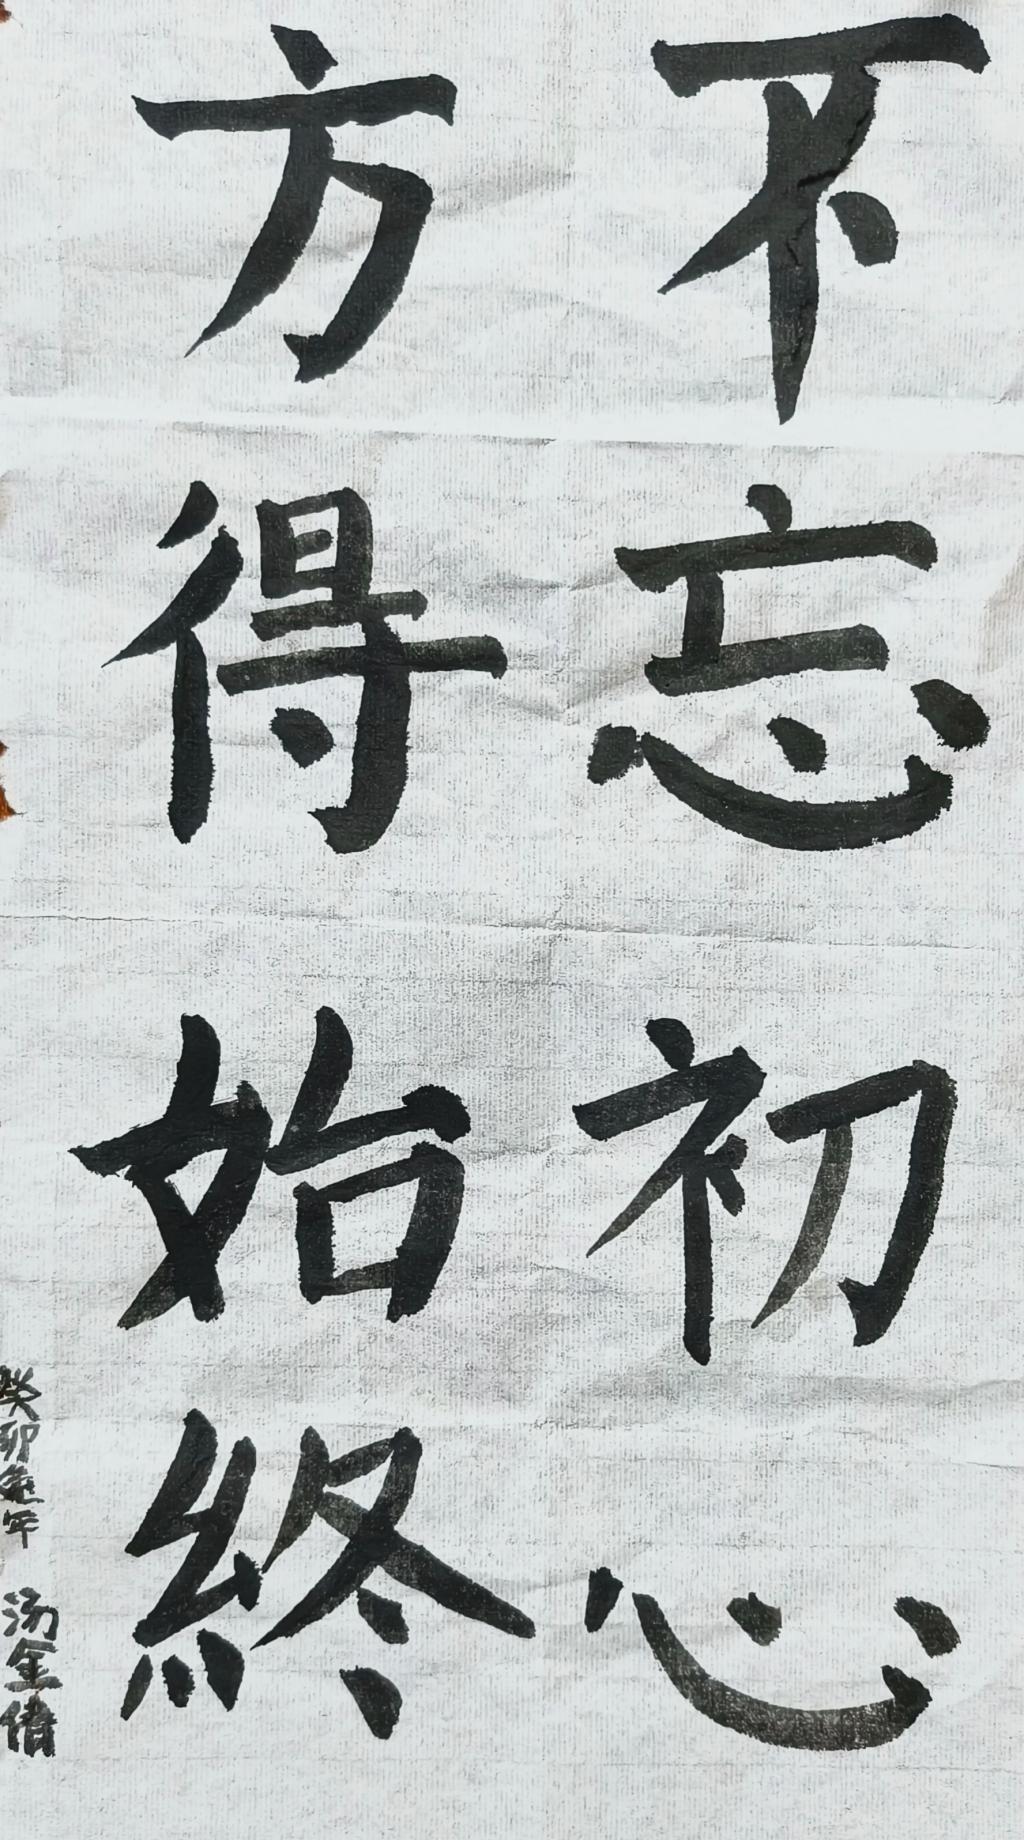 不忘初心
方得始終
癸卯兔年 汤金倩